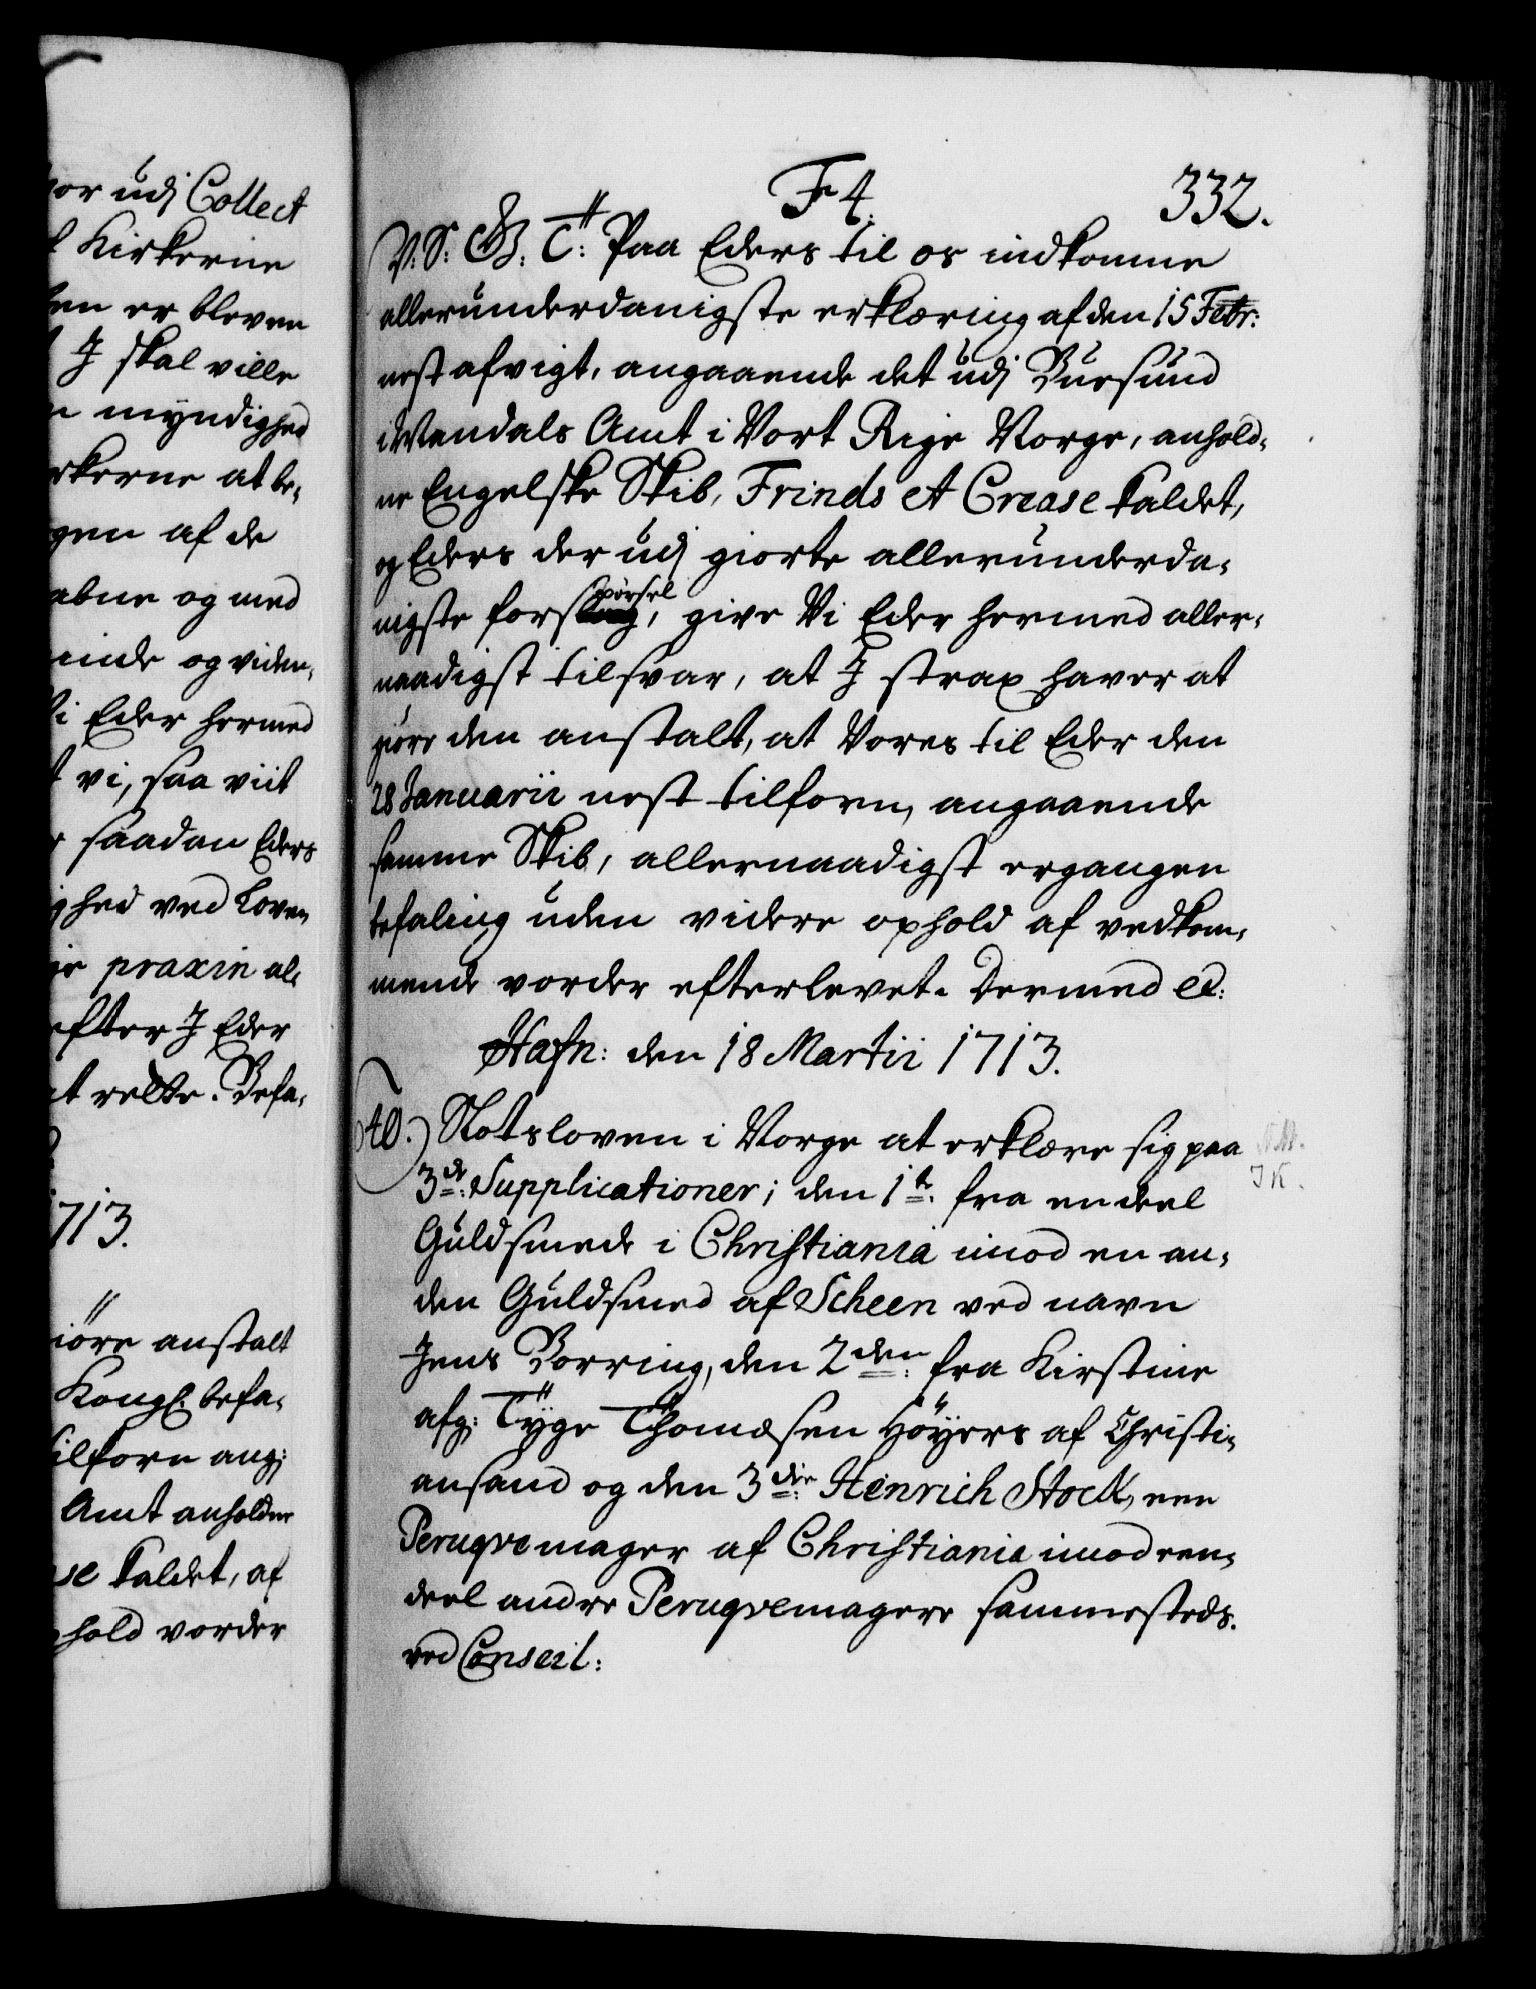 or udj Collect
Kirkerne
en er bleven
J skal ville
myndighed
kerne at be-
gen af de
abne og med
inde og viden,
i Eder hermed
vi, saa viit
saadan Eders
ghed ved Loven
praxin al-
efter J Eder
at rette. Befa-
1713.
iöre anstalt
Kongl: befa-
tilforn ang:
Amt anholdne
se kaldet, af
hold vorder
F 4.
332.
V. S. G. T: Paa Eders til os indkomne
allerunderdanigste erklæring af den 15 Febr:
nest afvigt, angaaende det udj Buesund
i Mandals Amt i Vort Rige Norge, anhold-
ne Engelske Skib, Frinds et Crease kaldet,
og Eders der udj giorte allerunderda-
nigste forspörsel, give Vi Eder hermed aller-
naadigst tilsvar, at J strax haver at
giöre den anstalt, at Vores til Eder den
28 Januarii nest tilforn, angaaende
samme Skib, allernaadigst ergangen
befaling uden videre ophold af vedkom-
mende vorder efterlevet. Dermed etc:
Hafn: den 18 Martii 1713.
40. Slotsloven i Norge at erklære sig paa
3de: Supplicationer; den 1te: fra en deel
Guldsmede i Christiania imod en an-
den Guldsmed af Scheen ved navn
Jens Borring, den 2den: fra Kirstine
afg: Tÿge Thomæsen Höÿers af Christi-
ansand og den 3die: Henrich Stock, een
Peruqvemager af Christiania imod een-
deel andre Peruqvemagere sammesteds.
ved Conseil:
J K.